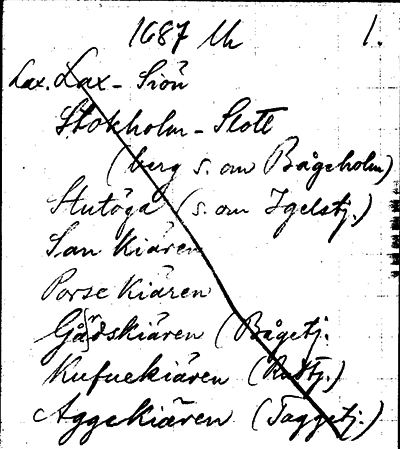 1687 Uk 1.
Lax. Lax-Siön
Stokholm-Slott
(berg s. om Bågeholm)
Stutöga (s. om Igelstj.)
San Kiären
Porse Kiären
Gårdskiären (Bågetj.
Kufuekiären (Rudtj.)
Aggekiären (Taggetj.)